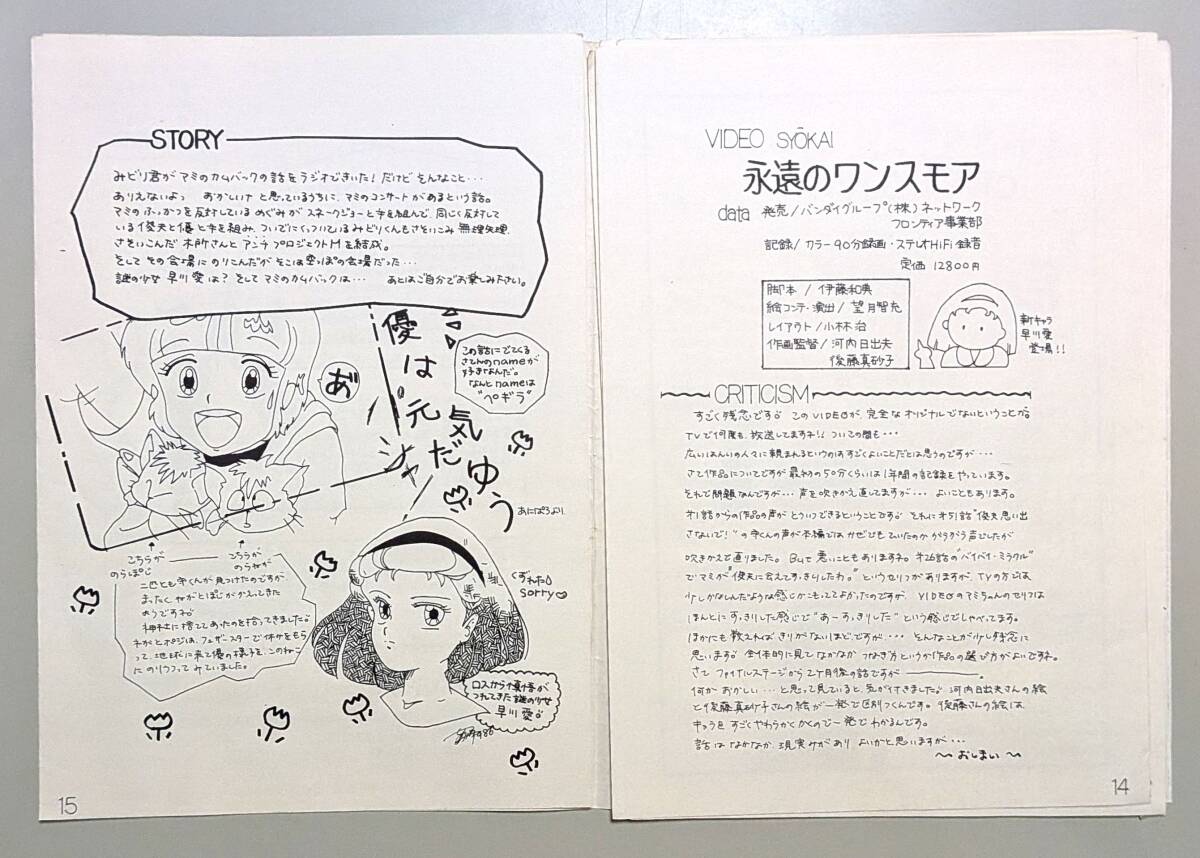 VIDEO SYŌKAI
永遠のワンスモア
data 発売/バンダイグループ(株)ネットワーク
フロンティア事業部
記録/カラー90分録画・ステレオHiFi録音
定価 12800円
脚本/伊藤和典
絵コンテ・演出/望月智充
レイアウト/小林治
作画監督/河内日出夫
後藤真砂子
新キャラ
早川愛
登場!!
CRITICISM
すごく残念です。このVIDEOが、完全なオリジナルでないということが。
TVで何度も、放送してますネ!!ついこの間も・・・
広いはんいの人々に親まれるというのはすごくよいことだとは思うのですが・・・
さて作品についてですが最初の50分くらいは1年間の記録をやっています。
それで問題なんですが・・・声を吹きかえ直してますが・・・よいこともあります。
第1話からの作品の声がとういつできるということです。それに第51話"俊夫思い出
さないで!"の守くんの声が本編ではかぜひいていたのかがらがら声でしたが
吹きかえで直りました。Butて悪いこともありますネ。第26話の"バイバイ・ミラクル"
でマミが"俊夫に会えてすっきりしたわ。"というセリフがありますが、TVの方では
少しかなしんだような感じがこもっててよかったのですが、VIDEOのマミちゃんのセリフは
ほんとにすっきりした感じで"あーすっきりした"という感じでしゃべってます。
ほかにも数えればきりがないほどですが、・・・そんなことが少し残念に
思います。全体的に見てなかなかつなぎ方というか作品の選び方がよいですネ。
さてファイナルステージから2ケ月後の話ですが――。
何かおかしい・・・と思って見ていると気が付きました。河内日出夫さんの絵
と後藤真砂子さんの絵が一発で区別つくんです。後藤さんの絵は
キャラをすごくやわらかくかくので一発でわかるんです。
話はなかなか現実みがありよいかと思いますが・・・
〜おしまい〜
14
STORY
みどり君がマミのカムバックの話をラジオできいた!だけどそんなこと・・・
ありえないよっ おかしいナと思っているうちに、マミのコンサートがあるという話。
マミのふっかつを反対しているめぐみがスネークジョーと手を組んで、同じく反対して
いる俊夫と優と手を組み、ついでにくっついているみどりくんもさそいこみ無理矢理、
さそいこんだ木所さんとアンチプロジェクトMを結成。
そしてその会場にのりこんだがそこは空っぽの会場だった・・・
謎の少女 早川愛は?そしてマミのカムバックは・・・ あとはご自分でお楽しみ下さい。
優は元気だ
ゆう
この話にでてくる
さてんのnameが
好きなんだ。
なんとnameは
"ペギラ"
あにぱろより
こちらが
のらぽじ
こちらが
のらネガ
二匹とも守くんが見つけたのですが
まったくネガとポジがかえってきた
ようですネ。
神社に捨ててあったのを拾ってきました。
ネガとポジは、フェザースターで休かをもら
って、地球に来て優の様子を、このねこ
にのりうつってみていました。
くずれた
Sorry
ロスから慎悟が
つれてきた謎の少女
早川愛。
15